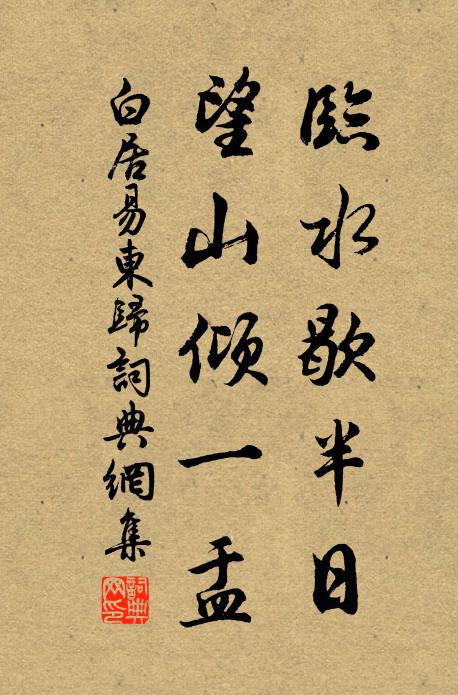 臨水歇半日
望山傾一盂
白居易東歸詞典網集
詞典
网印